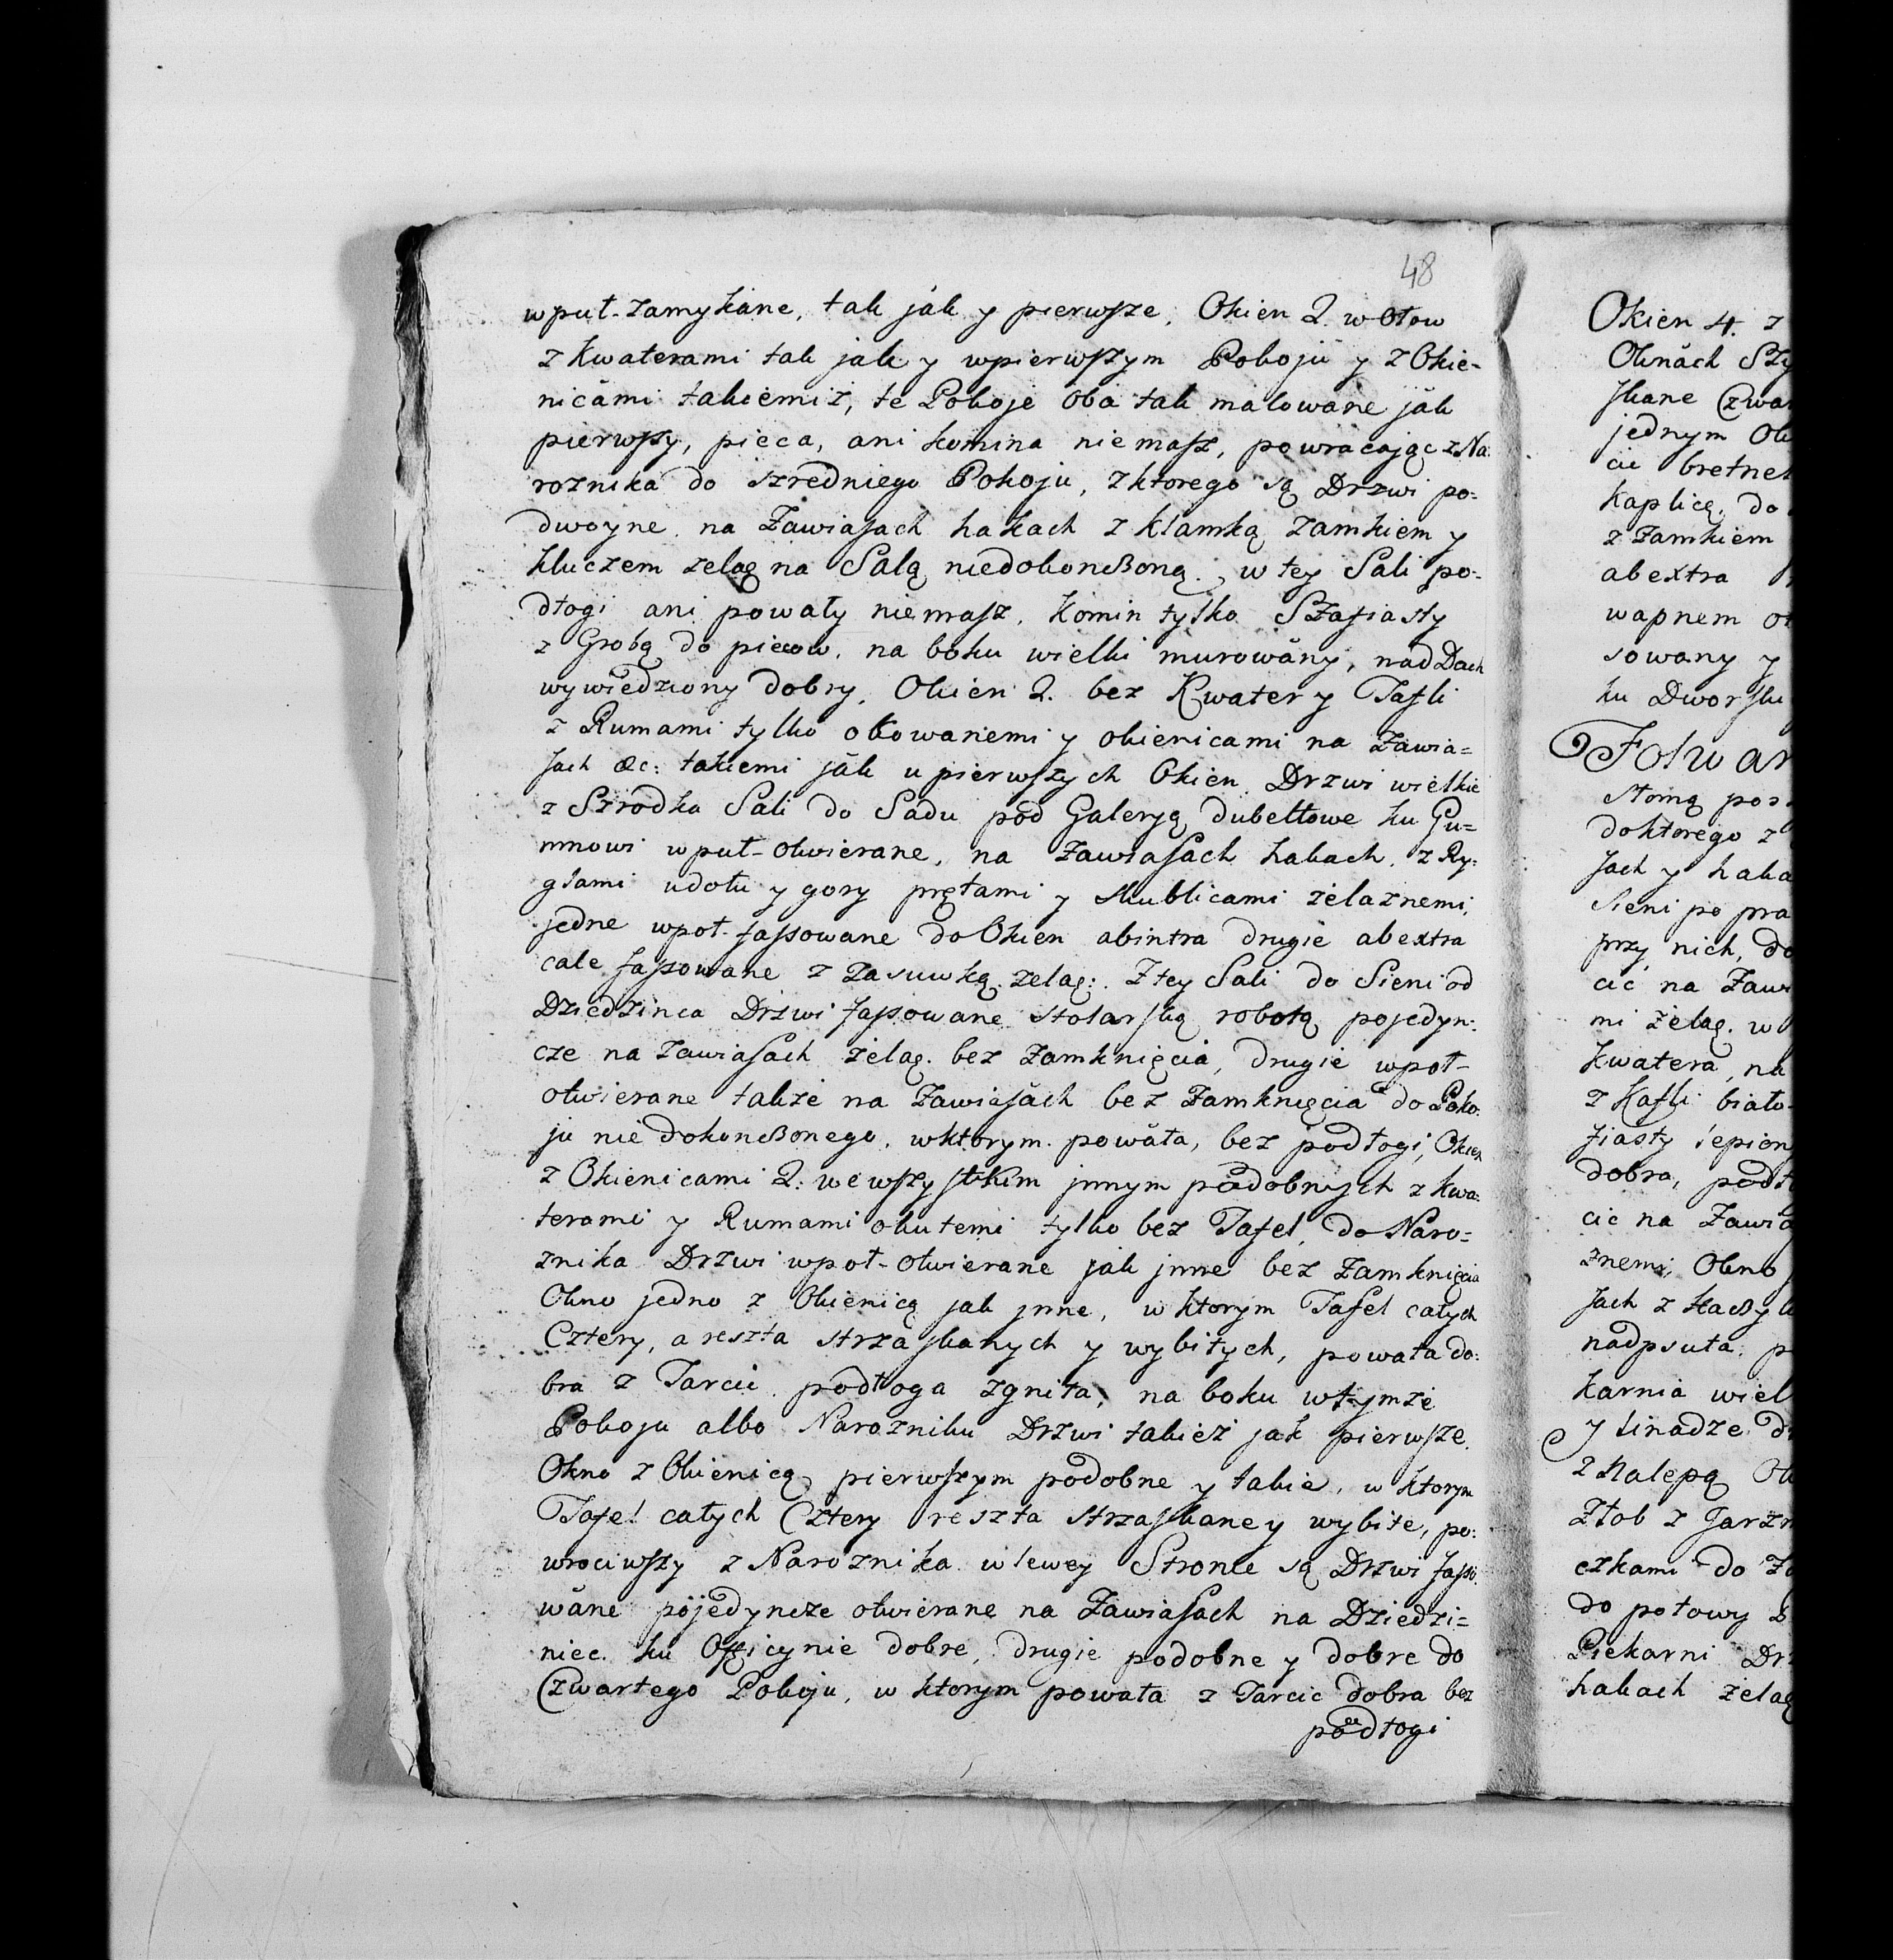 48
wpuł-zamykane, tak jak y pierwsze. Okien 2. w Ołow
z Kwaterami tak jak y wpierwszym Pokoju y z Okie-
nicami takiemiż, te Pokoje oba tak malowane jak
pierwszy, pieca, ani komina nie masz, powracając z Na:
roznika do szredniego Pokoju, z ktorego są Drzwi po=
dwoyne na Zawiasach hakach z klamką zamkiem y
kluczem zelaę na Salą niedokonszoną. w tey Sali po=
dłogi ani powały niemasz. Komin tylko Szafiasty
z Grobą do piecow. na boku wielki murowany, nad Dach
wywiedziony dobry. Okien 2. bez Kwater y Tafli
z Rumami tylko okowanemi y okienicami na Zawia=
sach &c: takiemi jak u pierwszych Okien. Drzwi wielkie
z Szrodka Sali do Sadu pod Galeryą dubeltowe ku Gu=
mnowi wpuł-otwierane, na zawiasach hakach, z Ry:
glami udołu y gory prętami y skublicami żelaznemi,
jedne wpoł-fassowane do Okien abintra drugie abextra
cale fassowane z Zasuwką. zelaę: Z tey Sali do Sieni od
Dziedzinca Drzwi fassowane stolarską robotą pojedyn:
cze na zawiasach żelaę. bez zamknięcia, drugie wpoł-
otwierane takze na Zawiasach bez Zamknięcia do Poko:
ju nie dokonszonego, wktorym powała, bez podłogi, Okien
z Okienicami 2: we wszystkim jnnym podobnych z kwa:
terami y Rumami okutemi tylko bez Tafel, do Naro=
znika Drzwi wpoł-otwierane jak jnne bez Zamknięcia
Okno jedno z Okienicą jak jnne, w ktorym Tafel całych
Cztery, a reszta strzaskanych y wybitych, powała do:
bra z Tarcic podłoga zgniła, na boku wtymze
Pokoju albo Narozniku Drzwi takież jak pierwsze.
Okno z Okienicą pierwszym podobne y takie, w ktorym
Tafel całych Cztery reszta strzaskane y wybite, po:
wrociwszy z Naroznika wlewey Stronie są Drzwi fasso:
wane pojedyncze otwierane na Zawiasach na Dziedzi=
niec. ku Officynie dobre, drugie podobne y dobre do
Czwartego Pokoju, w ktorym powała z Tarcic dobra bez
podłogi
Okien 4. z
Oknach
skane
jednym
cic
Kaplicą. do
z Zamkiem
abextra
wapnem
sowany y
ku
Folwar
słomą
doktorego z
sach y haka
Sieni po pra
przy nich, do
cić na Zawi
mi żelaę. w
Kwatera, na
z Kafli biało-
fiasty lepion
dobra, podł
cic na Zawia
znemi, Okno
sach z
nadpsuta. p
karnia wiel
y
z Nalepą
Złob z
czkami do
do połowy
Piekarni
hakach żelaę